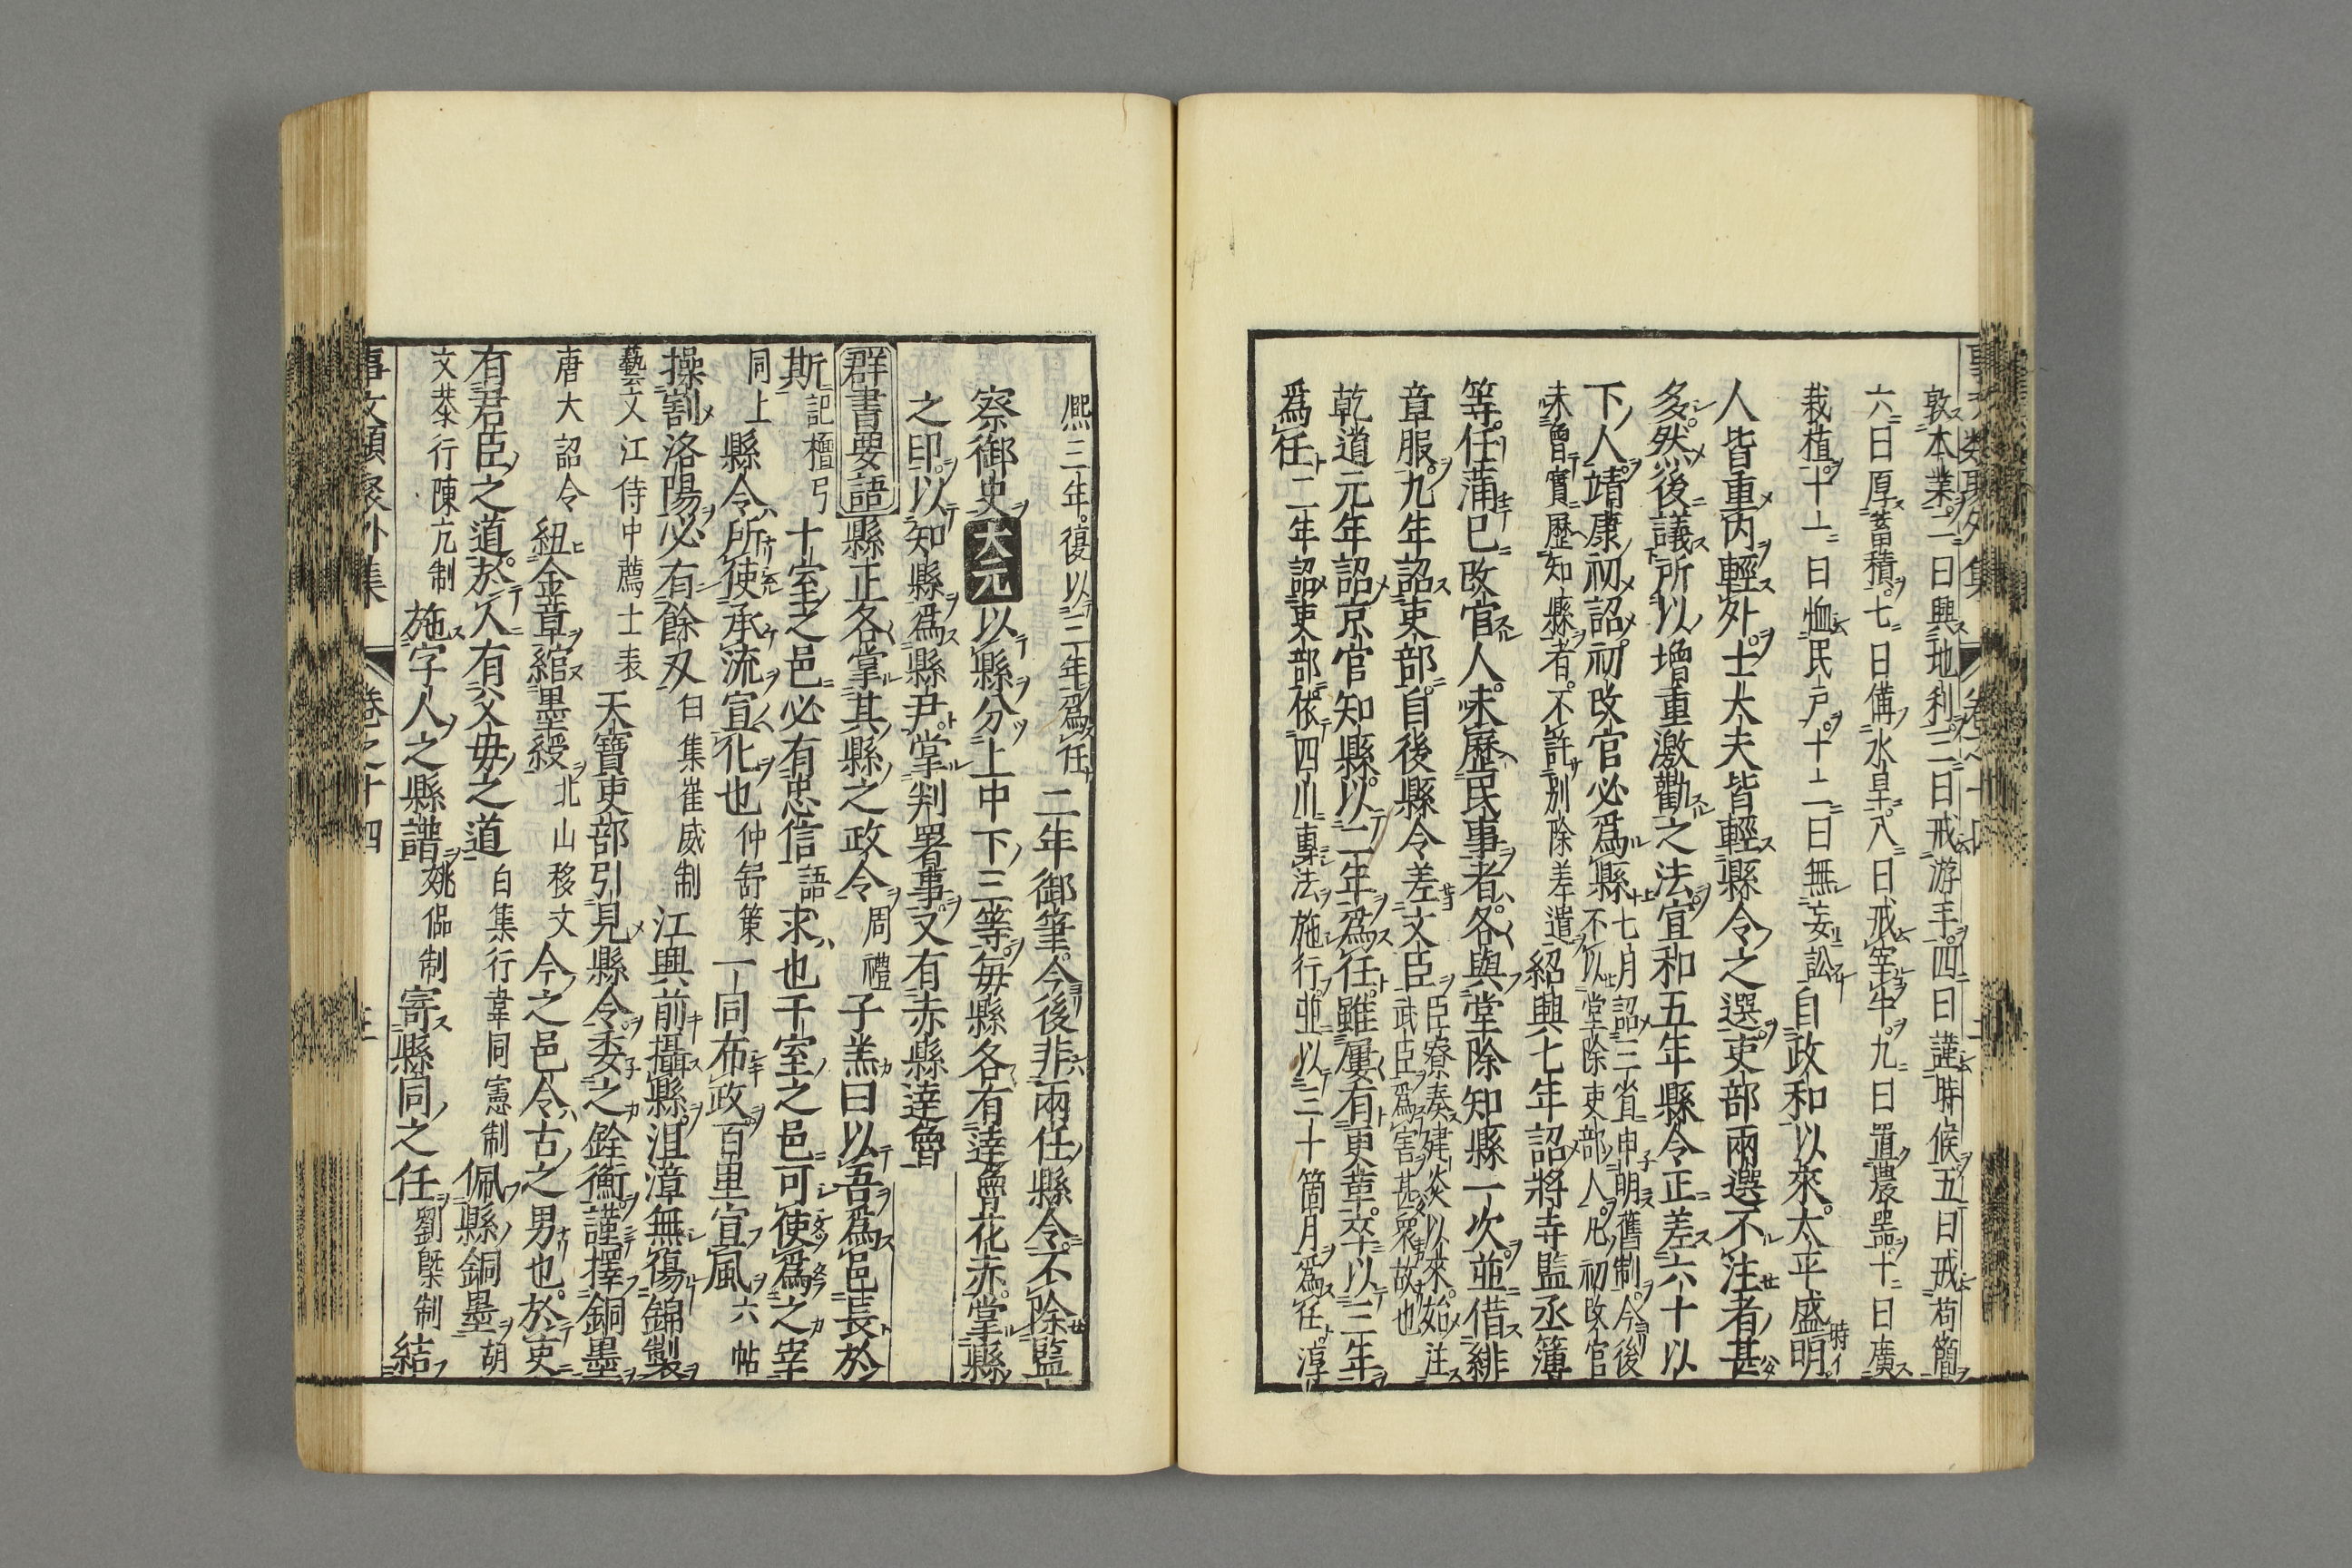 敦本業二曰興地利三曰戒游手四曰謹時候五曰戒苟簡
六曰厚蓄積七曰備水旱八曰戒宰牛九曰置農器十曰廣
栽植十一曰恤民戶十二曰無妄訟自政和以來太平盛明
人皆重內輕外士大夫皆輕縣令之選吏部兩選不注者甚
多然後議所以增重激勸之法宜和五年縣令正差六十以
下人靖康初詔初改官必爲縣七月詔三省申明舊制今後
不以堂除吏部人凡初改官
未曾實歷知縣者不許別除差遣紹興七年詔將寺監丞簿
等任蒲巳改官人未歷民事者各與堂除知縣一次並借緋
章服九年詔吏部自後縣令差文臣臣寮奏建炎以來始注
武臣爲害甚衆故也
乾道元年詔京官知縣以二年爲任雖屢有更章卒以三年
爲任二年詔吏部依四川專法施行並以三十箇月爲任淳
熈三年復以三年爲任二年御筆今後非兩任縣令不除監
察御史大元以縣分上中下三等每縣各有達魯花赤掌縣
之印以知縣爲縣尹掌判署事又有赤縣達魯
群書要語縣正各掌其縣之政令周禮子羔曰以吾爲邑長於
斯記檀弓十室之邑必有忠信語求也千室之邑可使爲之宰
同上縣令所使承流宣化也仲舒策一同布政百里宣風六帖
操割洛陽必有餘刃白集崔咸制江興前攝縣沮漳無傷錦製
藝文江侍中薦士表天寶吏部引見縣令委之銓衡謹擇銅墨
唐大詔令紐金章綰墨綬北山移文今之邑令古之男也於吏
有君臣之道於人有父毋之道白集行韋同憲制佩縣銅墨胡
文恭行陳亢制施字人之縣譜姚侶制寄縣同之任劉槩制結
事文類聚外集 卷之十四